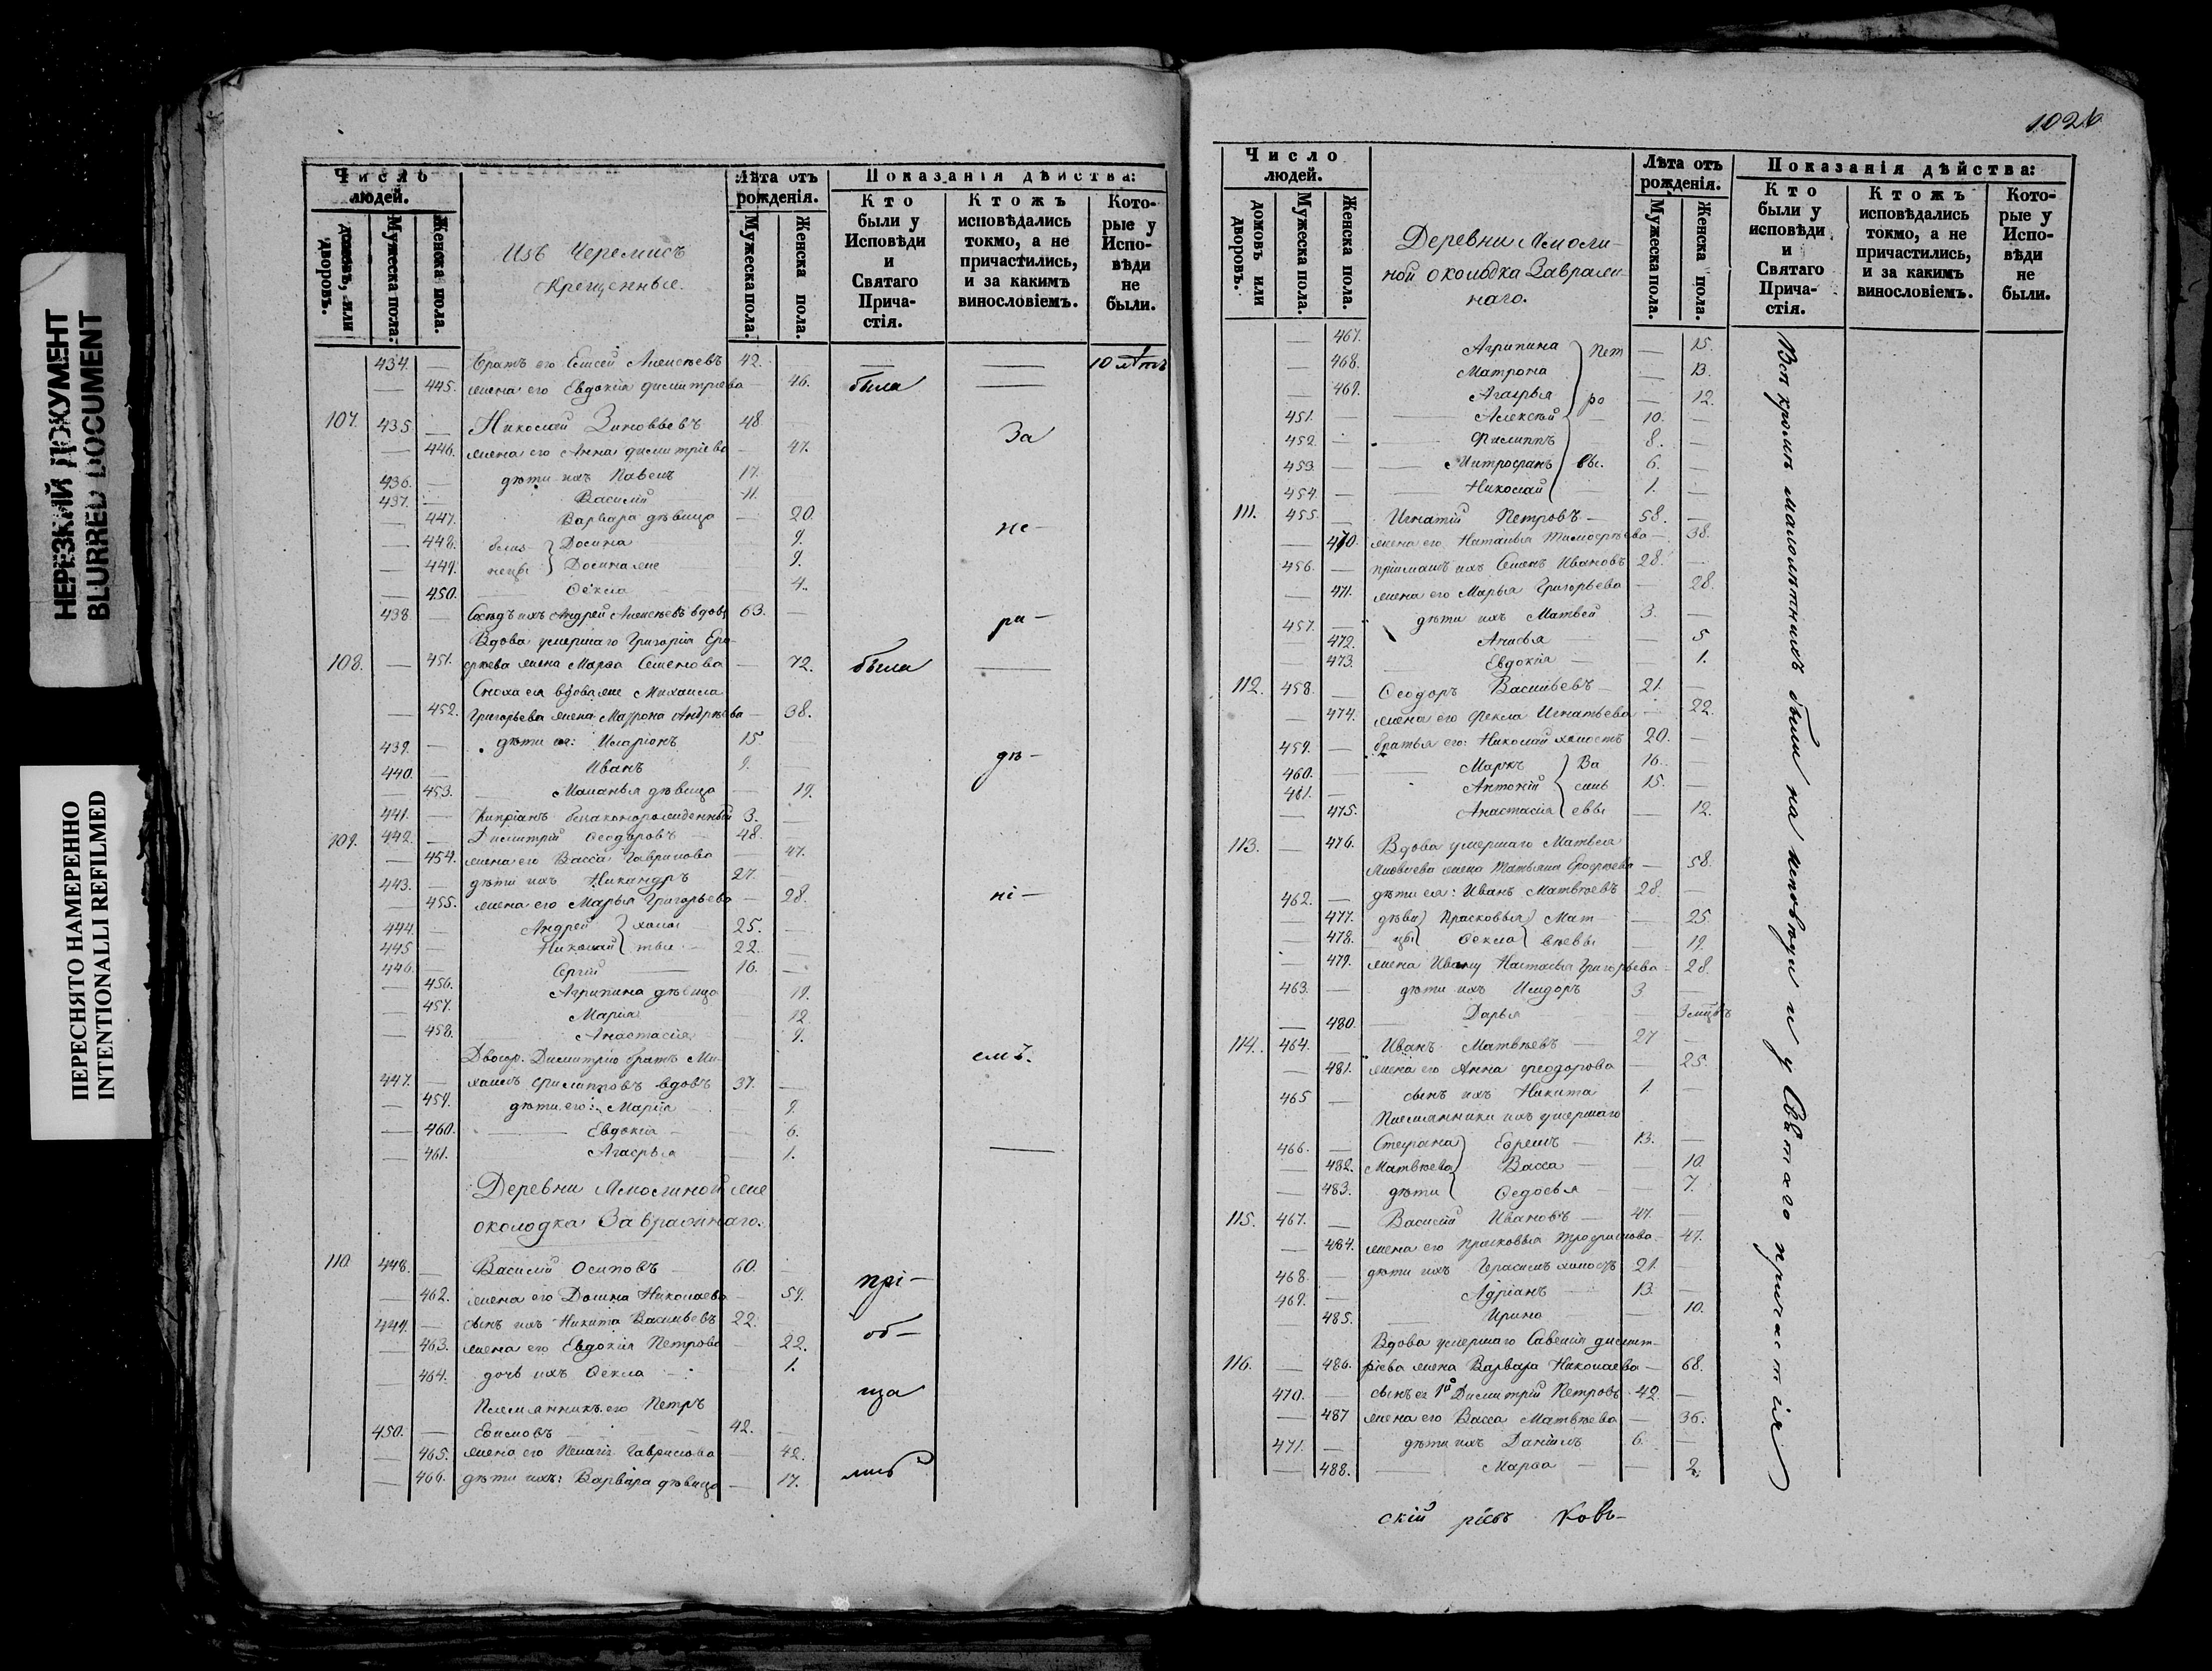 НЕРЕЗКИЙ ДОКУМЕНТ
BLURRED DOCUMENT
ПЕРЕСНЯТО НАМЕРЕННО
INTENTIONALLI REFILMED
Число людей.
домовъ, или дворовъ.
Мужеска пола.
Женска пола.
Изъ Черемисъ
Крещенные.
Лѣта отъ рожденія.
Мужеска пола.
Женска пола.
Показанія дѣйства:
Кто были у Исповѣди и Святаго Прича-стія.
Ктожъ исповѣдались токмо, а не причастились, и за какимъ винословіемъ.
Кото-рые у Испо-вѣди не были.
434. — Братъ его Елисей Алексѣевъ 42. — — 10 лѣтъ
— 445. жена его Евдокія Димитріева 46. была —
107. 435 — Николай Зиновьевъ 48.
— 446. жена его Анна Димитріева — 47.
436. — дѣти ихъ Павелъ 17.
437. — Василій 11.
— 447. Варвара дѣвица — 20.
— 448. близ- Досина — 9.
— 449. нецы Досина же 9.
— 450. Ѳекла 4.
438 — Сосѣдъ ихъ Андрей Алексѣевъ вдовъ 63. —
Вдова умершаго Григорія Еро-
108. — 451. фѣева жена Марѳа Семенова — 72. была —
Сноха ея вдова же Михаила
— 452. Григорьева жена Матрона Андрѣева — 38.
439. — дѣти ея: Иларіонъ 15.
440. — Иванъ 9. —
— 453. Маланья дѣвица — 19.
441. — Кипріанъ беззаконорожденный 3. —
109. 442. — Димитрій Ѳеодоровъ 48. —
— 454. жена его Васса Гаврилова — 47.
443. — дѣти ихъ Никандръ 27. —
— 455. жена его Марья Григорьева — 28.
444. — Андрей холос 25. —
445 — Николай тые 22. —
446. — Сергій 16. —
— 456. Агрипина дѣвица 19.
— 457. Марія 12.
— 458. Анастасія 9.
Двоюр. Димитрію братъ Ми-
447. — хаилъ Филипповъ вдовъ 37. —
— 459. дѣти его: Марія 9.
— 460. Евдокія 6.
— 461. Агаѳья 1.
За
не—
ра—
дѣ—
ні—
емъ.
Деревни Ямолиной же
околодка Завражнаго.
110 448. — Василій Осиповъ 60. —
— 462. жена его Домна Николаева — 59.
449. — сынъ ихъ Никита Васильевъ 22.
— 463. жена его Евдокія Петрова 22.
— 464. дочь ихъ Ѳекла 1.
Племянникъ его Петръ
450. — Еѳимовъ 42. —
— 465. жена его Пелагія Гаврилова — 42.
— 466. дѣти ихъ: Варвара дѣвица — 17.
прі—
об—
ща
1026
Число людей.
домовъ или дворовъ.
Мужеска пола.
Женска пола.
Деревни Ямоли-
ной околодка Завраж-
наго.
Лѣта отъ рожденія.
Мужеска пола.
Женска пола.
Показанія дѣйства:
Кто были у исповѣди и Святаго Прича-стія.
Ктожъ исповѣдались токмо, а не причастились, и за какимъ винословіемъ.
Кото-рые у Испо-вѣди не были.
— 467. Агрипина Пет — 15.
— 468. Матрона — 13.
— 469. Агаѳья ро — 12.
451. — Алексѣй 10. —
452. — Филиппъ 8. —
453. — Митрофанъ вы. 6. —
454. — Николай 1. —
111. 455. — Игнатій Петровъ — 58. —
— 470. жена его Наталья Тимоѳеева — 38.
456. — пріимашъ ихъ Семенъ Ивановъ 28. —
— 471. жена его Марья Григорьева — 28.
457. — дѣти ихъ Матвей 3. —
— 472. Анисья — 5
— 473. Евдокія — 1.
112. 458. — Ѳеодоръ Васильевъ 21. —
— 474. жена его Фекла Игнатьева — 22.
459. — братья его: Николай холостъ 20. —
460. — Маркъ Ва 16. —
461. — Антоній силь 15. —
— 475. Анастасія евы — 12.
113. — 476. Вдова умершаго Матвея
Яковлева жена Татьяна Ерофѣева — 58.
462. — дѣти ея: Иванъ Матвѣевъ 28. —
— 477. дѣви Прасковья Мат — 25
— 478. цы Ѳекла вѣевы — 19.
— 479. жена Ивану Настасья Григорьева — 28.
463. — дѣти ихъ Исидоръ 3 —
— 480. Дарья 3 мцвъ
114. 464. — Иванъ Матвѣевъ 27 —
— 481. жена его Анна Феодорова — 25.
465 — сынъ ихъ Никита 1. —
Племянники ихъ умершаго
466. — Стефана Ефремъ — 13. —
— 482. Матвѣева Васса — 10.
— 483. дѣти Ѳедосья — 7.
115. 467. — Василій Ивановъ 47. —
— 484. жена его Прасковья Трофимова — 47.
468. — дѣти ихъ Герасимъ холостъ 21. —
469. — Адріанъ 13. —
— 485. Ирина 10.
Вдова умершаго Савелія Димит-
116. — 486. ріева жена Варвара Николаева — 68.
470. — сынъ ея 1й Димитрій Петровъ 42 —
— 487 жена его Васса Матвѣева — 36.
471. — дѣти ихъ Даніилъ 6. —
— 488. Марѳа — 2.
Всѣ кромѣ малолѣтнихъ были на исповѣди и у Святаго причастія
скій рієвъ Ковъ—